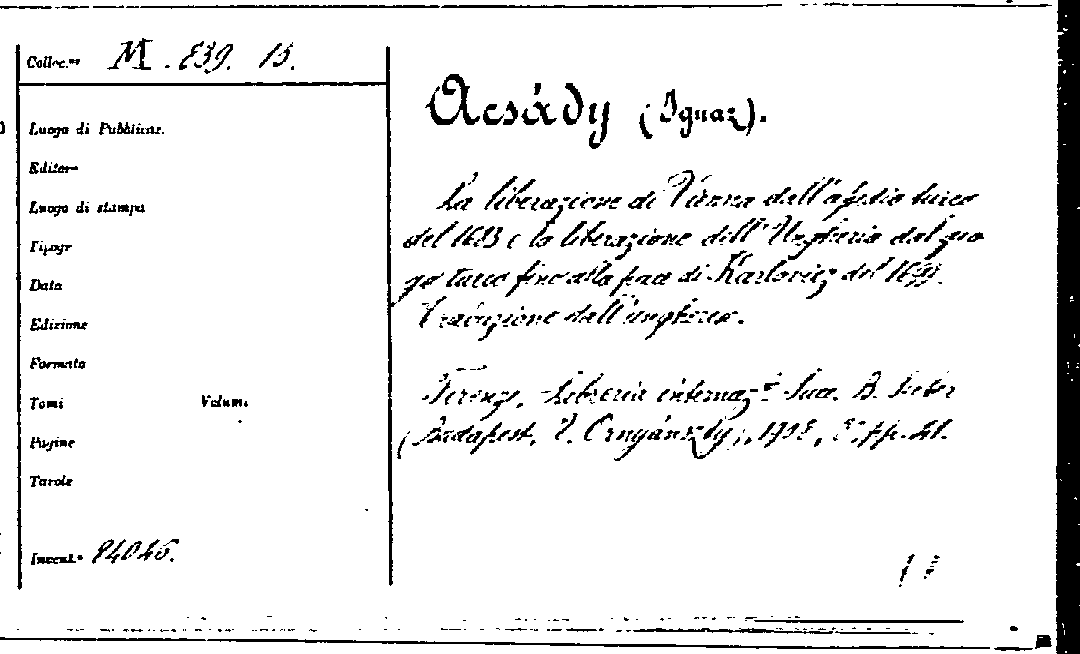 Colloc.ne M. 839. 15.
Luogo di Pubblicaz.
Editore
Luogo di stampa
Tipogr
Data
Edizione
Formato
Tomi Volumi
Pagine
Tavole
Invent.o
Acsády (Ignaz).
La liberazione di Vienna dall'assedio turco
del 1683 e la liberazione dell'Ungheria dal gio
go turco fino alla pace di Karlovicz del 1699.
Traduzione dall'ungherese.
Firenze, Libreria internaz.le Succ. B. Seeber
(Budapest, V. Hornyánszky), 8° pp.